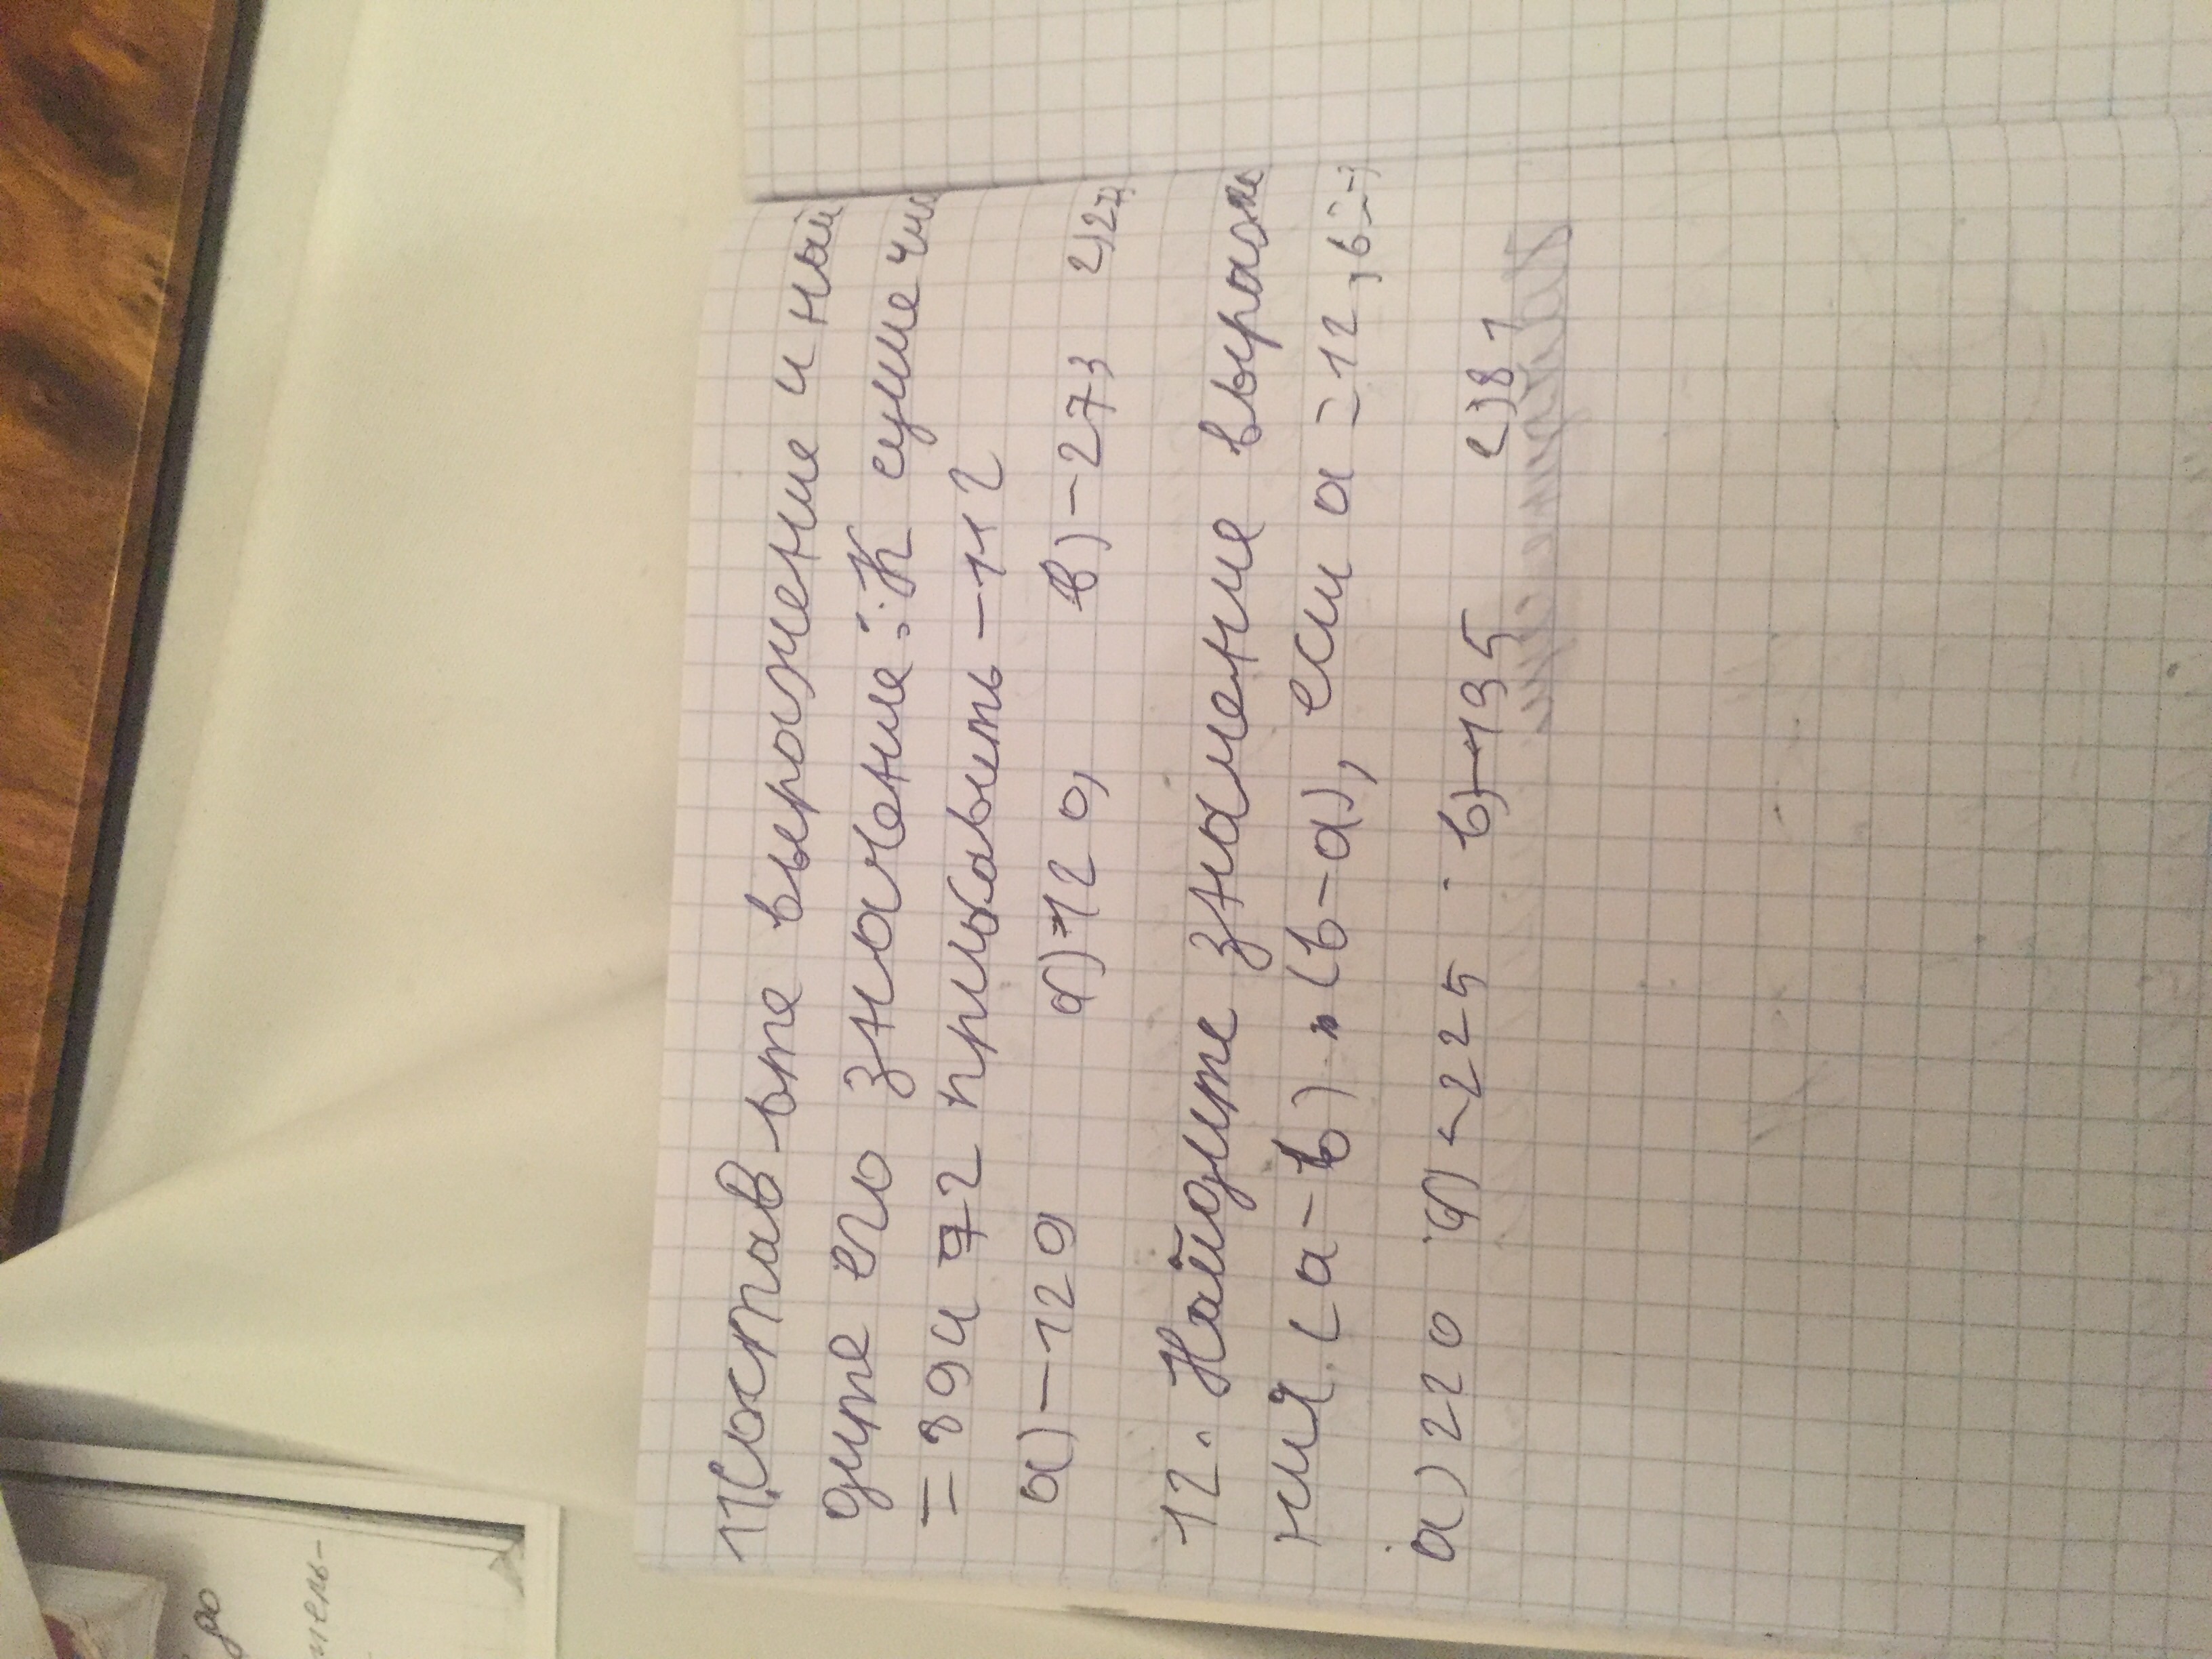 11. Составьте выражение и най
дите его значение: К сумме чис
-89 и 72 прибавить -112
а) -129 б) -120, в) -273 г) 27
12. Найдите значение выраже
ния (a-b) · (b-a), если a = -12, b =
а) 220 б) -225 в) -195 г) 81
до
тель-